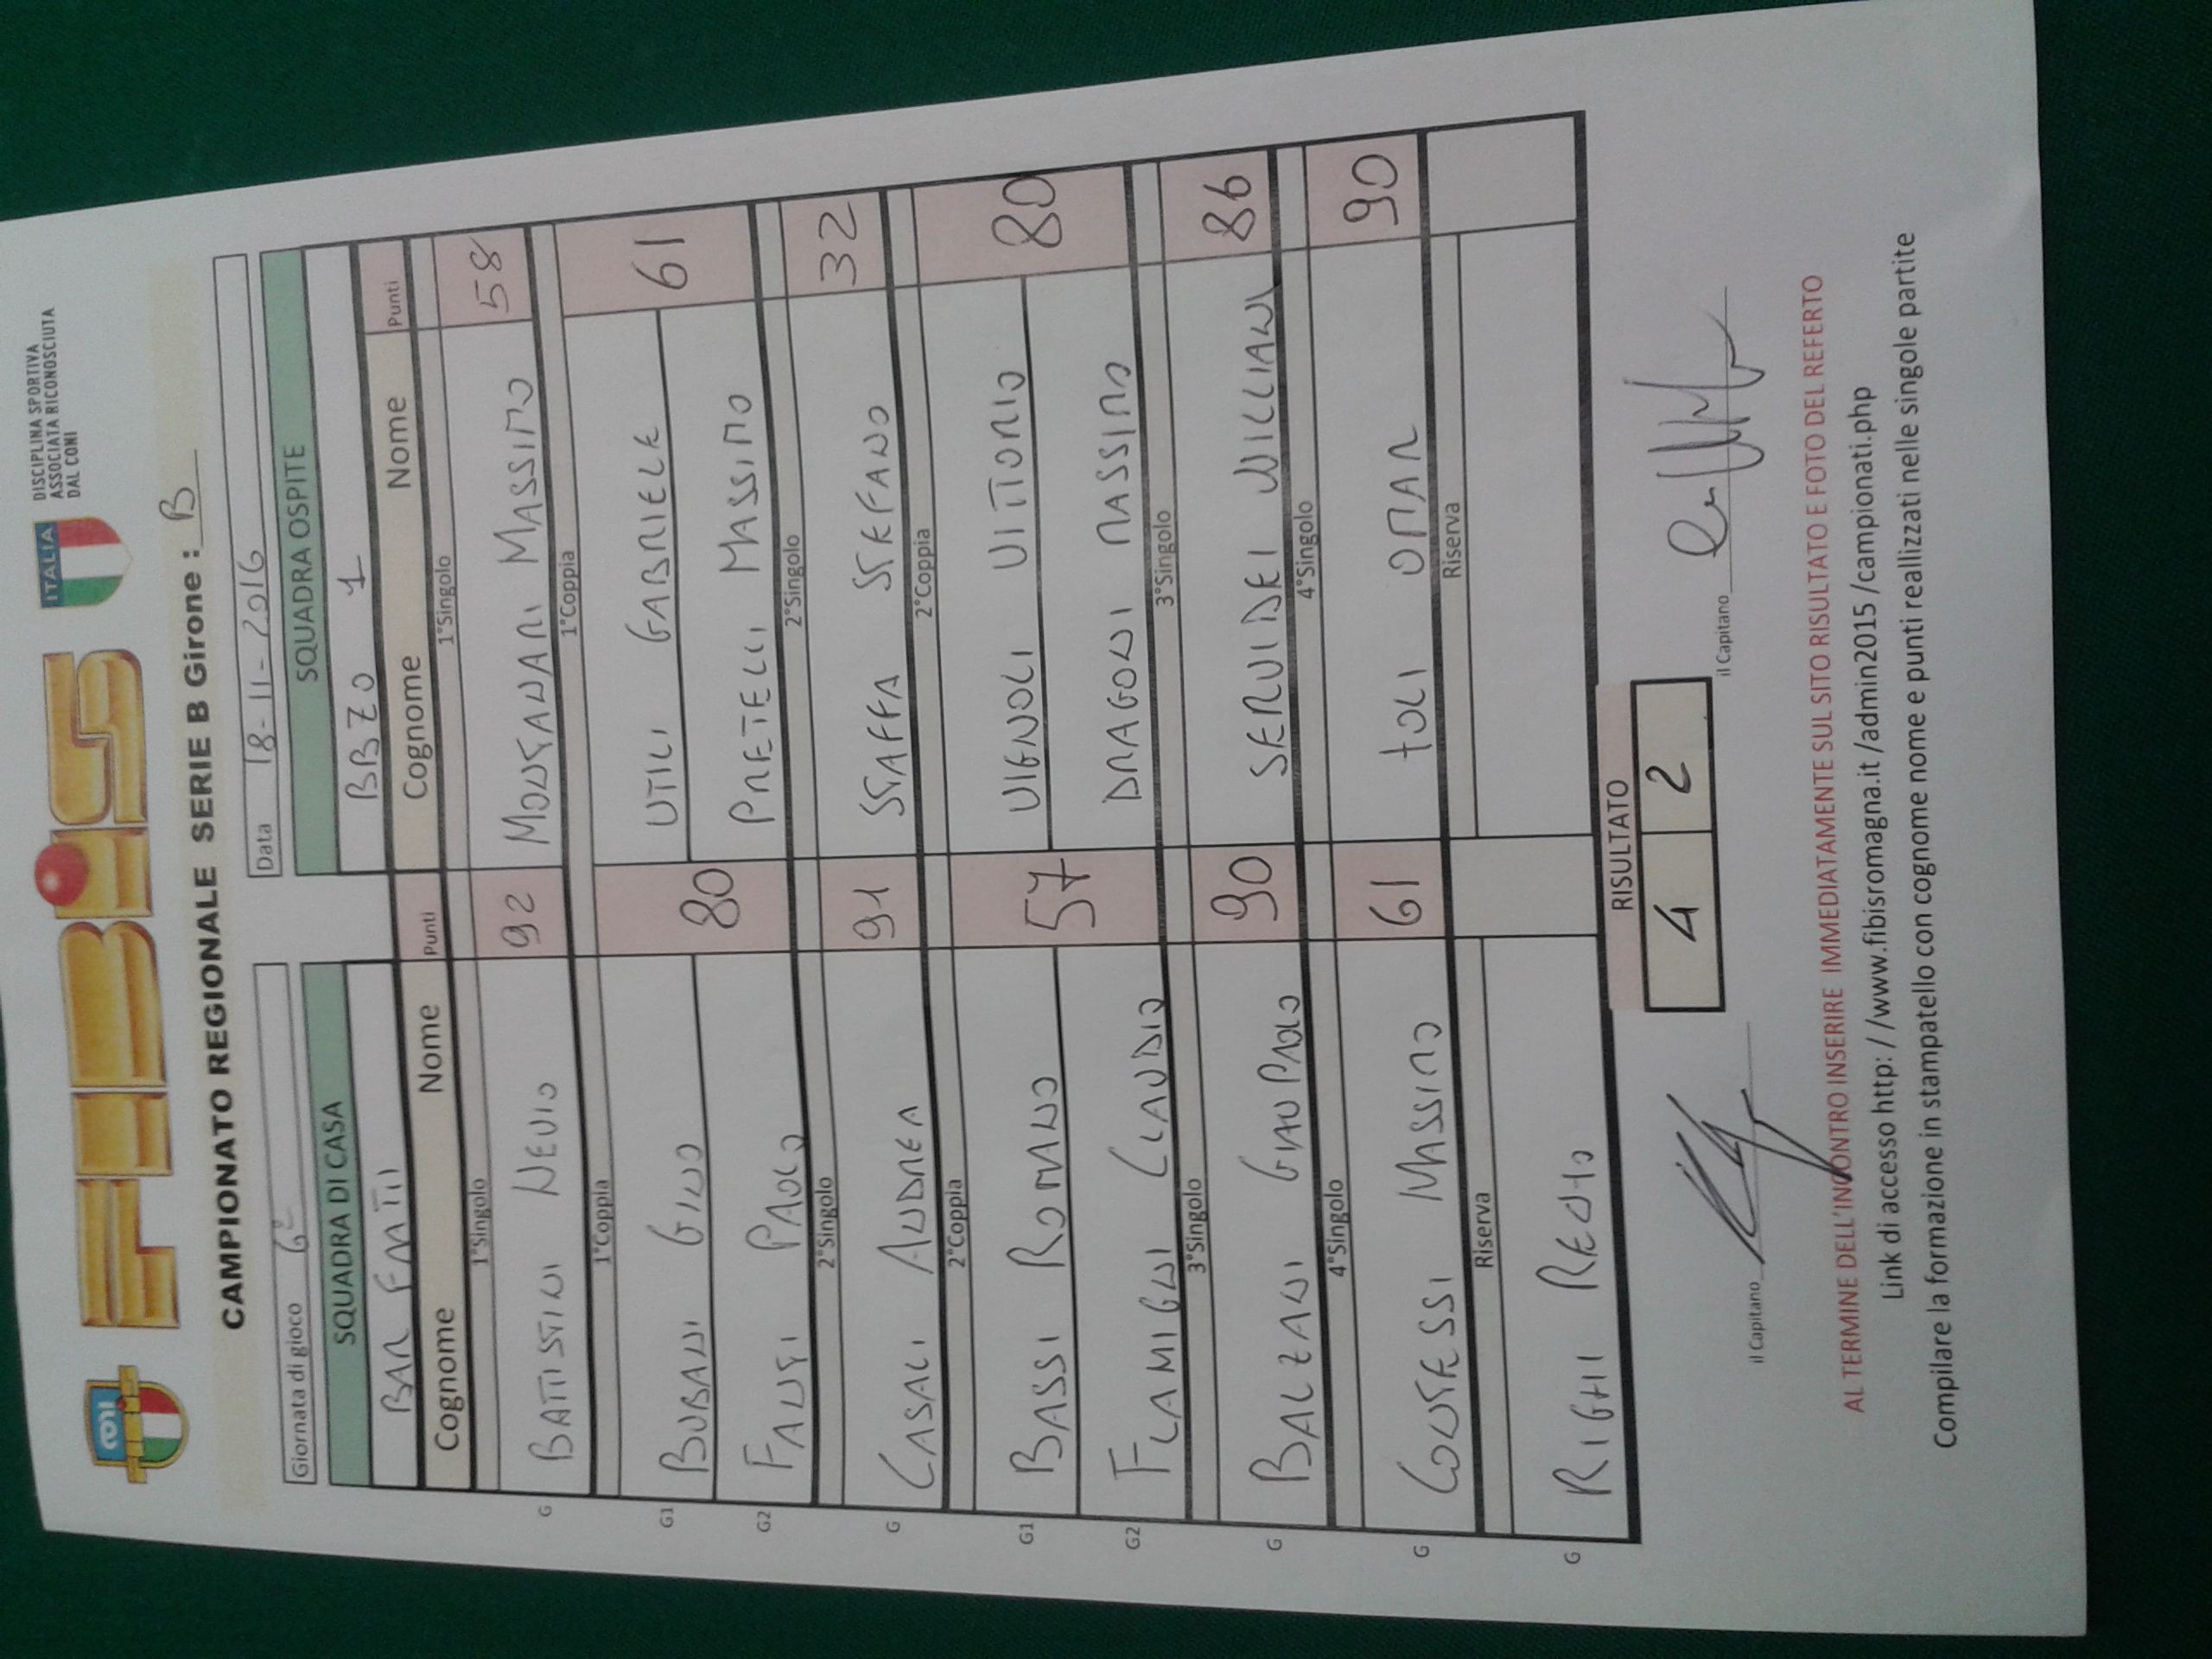 CONI
FIBiS
ITALIA
DISCIPLINA SPORTIVA
ASSOCIATA RICONOSCIUTA
DAL CONI
CAMPIONATO REGIONALE SERIE B Girone : B
Giornata di gioco 6ª
Data 18-11-2016
SQUADRA DI CASA SQUADRA OSPITE
BAR FANTI BBZO 1
Cognome Nome Punti Cognome Nome Punti
1°Singolo 1°Singolo
G BATTISTINI NEVIO 92 MONTANARI MASSIMO 58
1°Coppia 1°Coppia
G1 BUBANI GINO 80 UTILI GABRIELE 61
G2 FANTI PAOLO PRETELLI MASSIMO
2°Singolo 2°Singolo
G CASALI ANDREA 91 STAFFA STEFANO 32
2°Coppia 2°Coppia
G1 BASSI ROMANO 57 VIGNOLI VITTORIO 80
G2 FLAMIGNI CLAUDIO DRAGONI MASSIMO
3°Singolo 3°Singolo
G BALZANI GIANPAOLO 90 SERVIDEI WILLIAM 86
4°Singolo 4°Singolo
G CONTESSI MASSIMO 61 TOLI OMAR 90
Riserva Riserva
G RIGHI REMO
RISULTATO
4 2
il Capitano il Capitano
AL TERMINE DELL'INCONTRO INSERIRE IMMEDIATAMENTE SUL SITO RISULTATO E FOTO DEL REFERTO
Link di accesso http: / /www.fibisromagna.it /admin2015 /campionati.php
Compilare la formazione in stampatello con cognome nome e punti reallizzati nelle singole partite